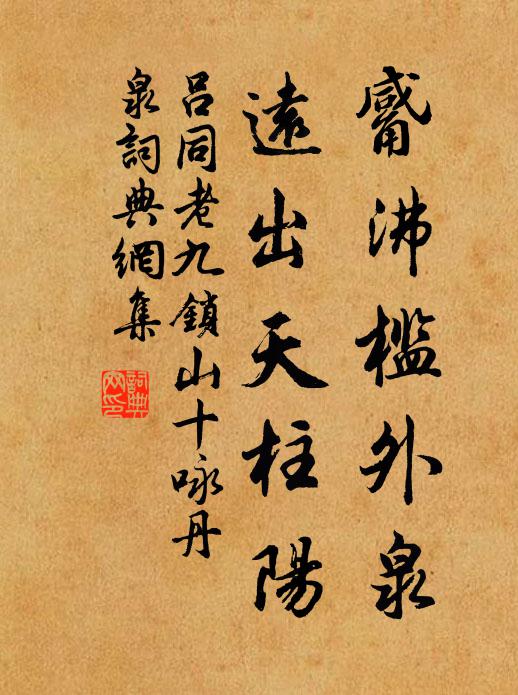 觱沸檻外泉
遠出天柱陽
呂同老九鎖山十咏丹
泉詞典網集
詞典
网印